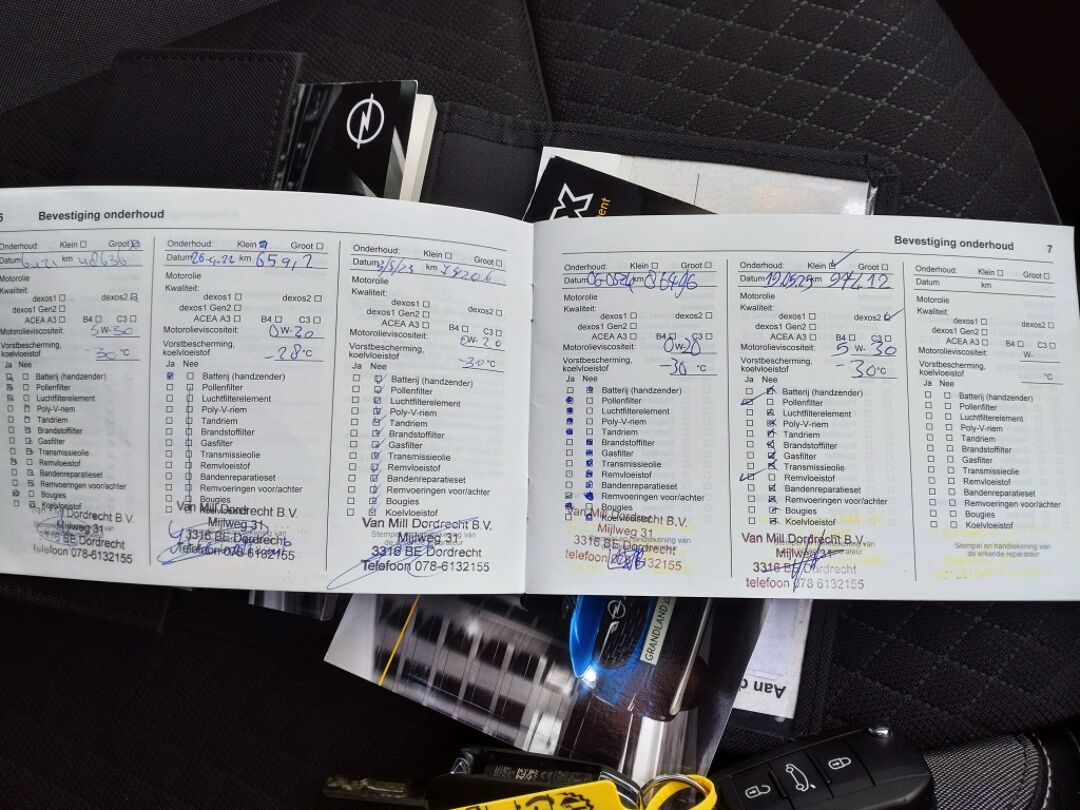 6 Bevestiging onderhoud
Onderhoud: Klein Groot
Datum km 48636
Motorolie
Kwaliteit:
dexos1 dexos2
dexos1 Gen2
ACEA A3 B4 C3
Motorolieviscositeit: 5W-30
Vorstbescherming, koelvloeistof -30 °C
Ja Nee
Batterij (handzender)
Pollenfilter
Luchtfilterelement
Poly-V-riem
Tandriem
Brandstoffilter
Gasfilter
Transmissieolie
Remvloeistof
Bandenreparatieset
Remvoeringen voor/achter
Bougies
Koelvloeistof
Dordrecht B.V.
Mijlweg 31
3316 BE Dordrecht
Telefoon 078-6132155
Onderhoud: Klein Groot
Datum 26-4-22 km
Motorolie
Kwaliteit:
dexos1 dexos2
dexos1 Gen2
ACEA A3 B4 C3
Motorolieviscositeit: 0W-20
Vorstbescherming, koelvloeistof -28 °C
Ja Nee
Batterij (handzender)
Pollenfilter
Luchtfilterelement
Poly-V-riem
Tandriem
Brandstoffilter
Gasfilter
Transmissieolie
Remvloeistof
Bandenreparatieset
Remvoeringen voor/achter
Bougies
Koelvloeistof
Van Mill Dordrecht B.V.
Mijlweg 31
3316 BE Dordrecht
Telefoon 078-6132155
Onderhoud: Klein Groot
Datum 3/5/23 km
Motorolie
Kwaliteit:
dexos1 dexos2
dexos1 Gen2
ACEA A3 B4 C3
Motorolieviscositeit: 0W-20
Vorstbescherming, koelvloeistof -30 °C
Ja Nee
Batterij (handzender)
Pollenfilter
Luchtfilterelement
Poly-V-riem
Tandriem
Brandstoffilter
Gasfilter
Transmissieolie
Remvloeistof
Bandenreparatieset
Remvoeringen voor/achter
Bougies
Koelvloeistof
Van Mill Dordrecht B.V.
Mijlweg 31
3316 BE Dordrecht
Telefoon 078-6132155
Bevestiging onderhoud 7
Onderhoud: Klein Groot
Datum km 86496
Motorolie
Kwaliteit:
dexos1 dexos2
dexos1 Gen2
ACEA A3 B4 C3
Motorolieviscositeit: 0W-20
Vorstbescherming, koelvloeistof -30 °C
Ja Nee
Batterij (handzender)
Pollenfilter
Luchtfilterelement
Poly-V-riem
Tandriem
Brandstoffilter
Gasfilter
Transmissieolie
Remvloeistof
Bandenreparatieset
Remvoeringen voor/achter
Bougies
Koelvloeistof
Van Mill Dordrecht B.V.
Mijlweg 31
3316 BE Dordrecht
telefoon 078 6132155
Onderhoud: Klein Groot
Datum km
Motorolie
Kwaliteit:
dexos1 dexos2
dexos1 Gen2
ACEA A3 B4 C3
Motorolieviscositeit: 5W-30
Vorstbescherming, koelvloeistof -30 °C
Ja Nee
Batterij (handzender)
Pollenfilter
Luchtfilterelement
Poly-V-riem
Tandriem
Brandstoffilter
Gasfilter
Transmissieolie
Remvloeistof
Bandenreparatieset
Remvoeringen voor/achter
Bougies
Koelvloeistof
Van Mill Dordrecht B.V.
Mijlweg 31
3316 BE Dordrecht
telefoon 078 6132155
Onderhoud: Klein Groot
Datum km
Motorolie
Kwaliteit:
dexos1 dexos2
dexos1 Gen2
ACEA A3 B4 C3
Motorolieviscositeit: W-
Vorstbescherming, koelvloeistof °C
Ja Nee
Batterij (handzender)
Pollenfilter
Luchtfilterelement
Poly-V-riem
Tandriem
Brandstoffilter
Gasfilter
Transmissieolie
Remvloeistof
Bandenreparatieset
Remvoeringen voor/achter
Bougies
Koelvloeistof
Stempel en handtekening van
de erkende reparateur
GRANDLAND
Aan d